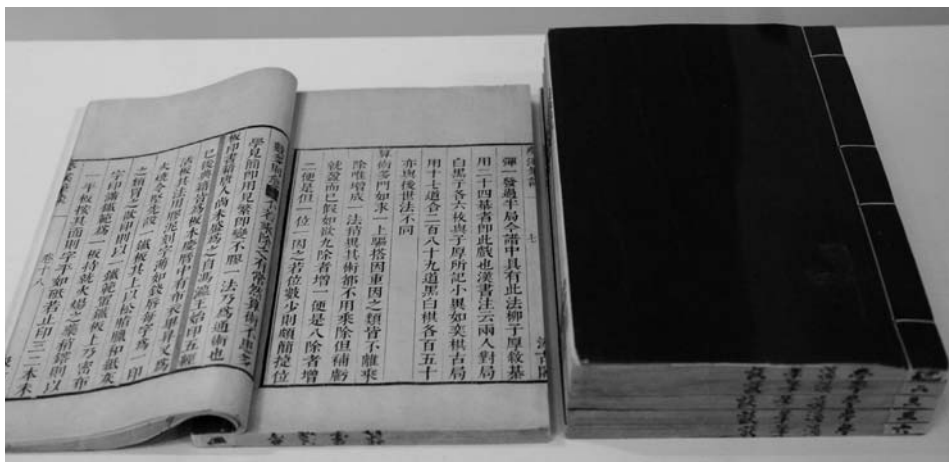 彈一發過半局今譜中具有此法柳子厚敘棊
用二十四棊者卽此戲也漢書注云兩人對局
白黑子各六枚與子厚所記小異如奕棋古局
用十七道合二百八十九道黑白棋各百五十
亦與後世法不同
算術多門如求一上驅搭因重因之類皆不離乘
除唯增成一法稍異其術都不用乘除但補虧
就盈而已假如欲九除者增一便是八除者增
二便是但一位一因之若位數少則頗簡捷位
七
汲古閣
數多則愈繁不若乘除之有常然算術不患多
學見簡卽用見繁卽變不膠一法乃爲通術也
板印書籍唐人尚未盛爲之自馮瀛王始印五經
已後典籍皆爲板本慶曆中有布衣畢昇又爲
活板其法用膠泥刻字薄如錢唇每字爲一印
火燒令堅先設一鐵板其上以松脂臘和紙灰
之類冒之欲印則以一鐵範置鐵板上乃密布
字印滿鐵範爲一板持就火煬之藥稍鎔則以
一平板按其面則字平如砥若止印三二本未
卷十八